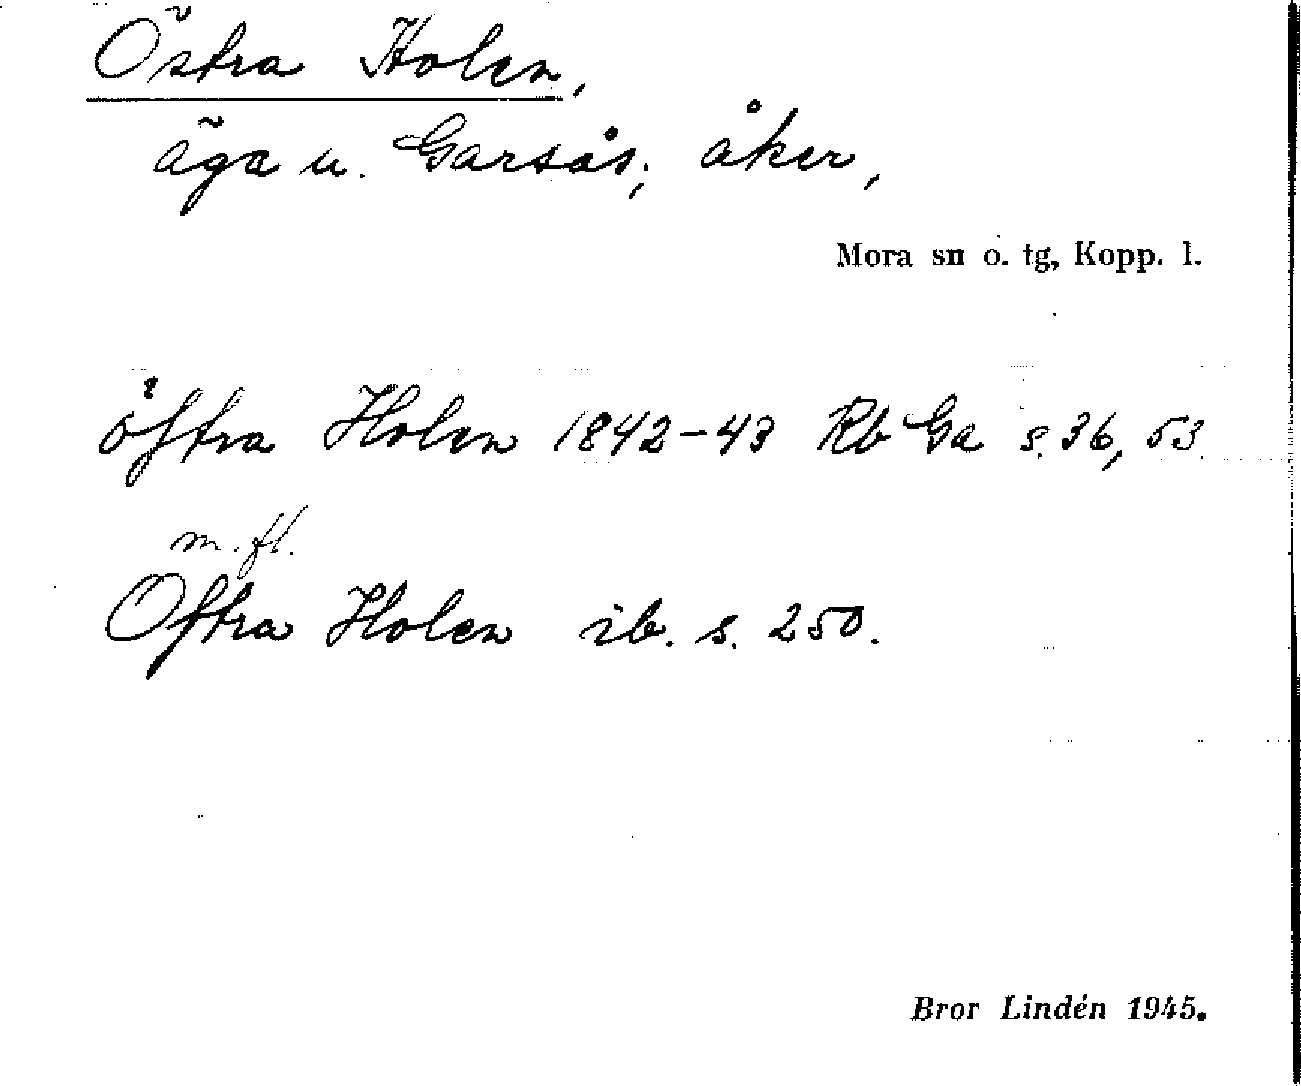 Östra Holen,
äga u. Garsås; åker,
Mora sn o. tg, Kopp. l.
öſtra Holen 1842-43 Rb Ga s. 36, 53
m. fl.
Oſtra Holen ib. s. 250.
Bror Lindén 1945.